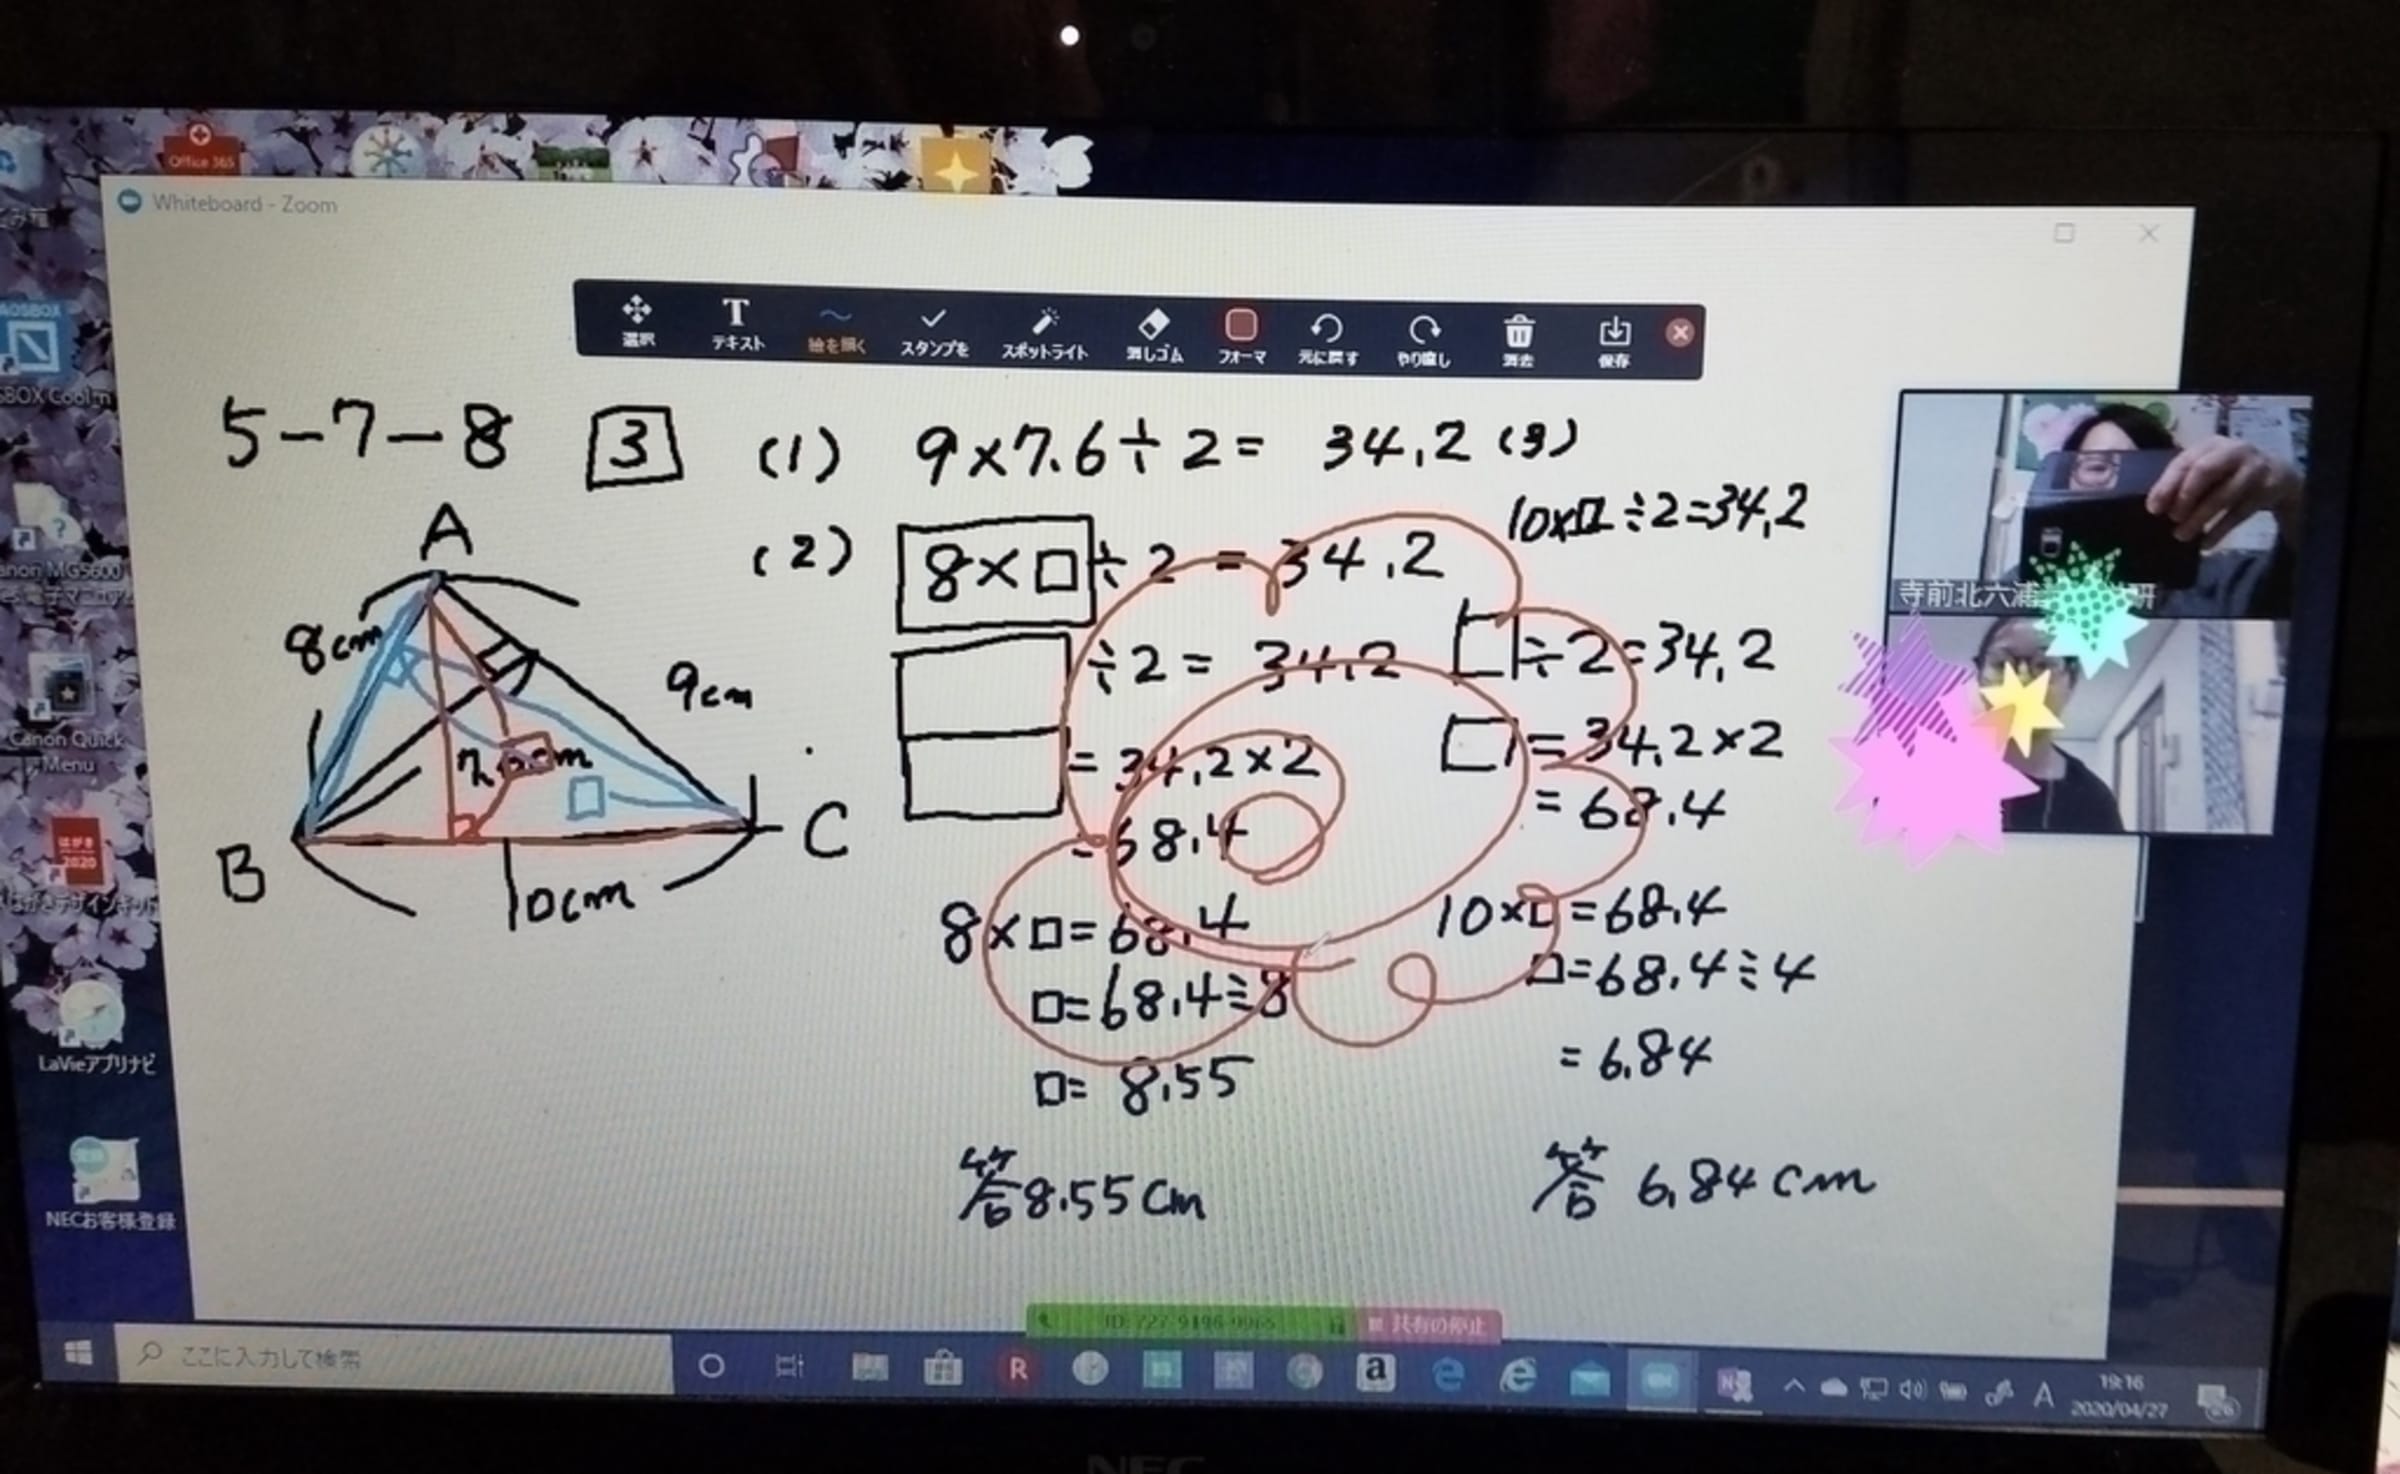 Office 365
Whiteboard - Zoom
選択
テキスト
絵を描く
スタンプを
スポットライト
消しゴム
フォーマ
元に戻す
やり直し
消去
保存
5-7-8 3 (1) 9×7.6÷2= 34.2 (3)
10×□÷2=34.2
(2) 8×□÷2=34.2
A
8cm
9cm
B
C
10cm
÷2= 34.2
=34.2×2
=68.4
8×□=68.4
□=68.4÷8
□= 8.55
答8.55cm
□÷2=34.2
□=34.2×2
=68.4
10×□=68.4
□=68.4÷4
=6.84
答 6.84cm
寺前北六浦
Canon Quick
Menu
はがき
2020
LaVieアプリナビ
NECお客様登録
共有の停止
ここに入力して検索
R
a
A
19:16
2020/04/27
NEC